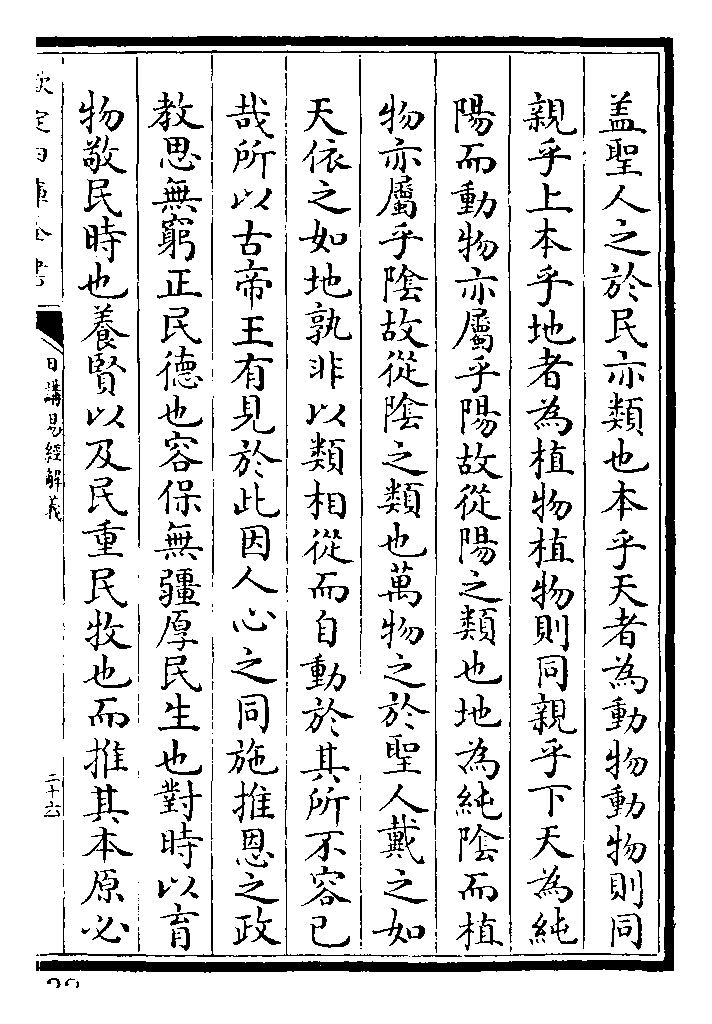 盖聖人之於民亦類也本乎天者為動物動物則同
親乎上本乎地者為植物植物則同親乎下天為純
陽而動物亦屬乎陽故從陽之類也地為純陰而植
物亦屬乎陰故從陰之類也萬物之於聖人戴之如
天依之如地孰非以類相從而自動於其所不容已
哉所以古帝王有見於此因人心之同施推恩之政
教思無窮正民德也容保無疆厚民生也對時以育
物敬民時也養賢以及民重民牧也而推其本原必
欽定四庫全書
日講易經解義
二十六